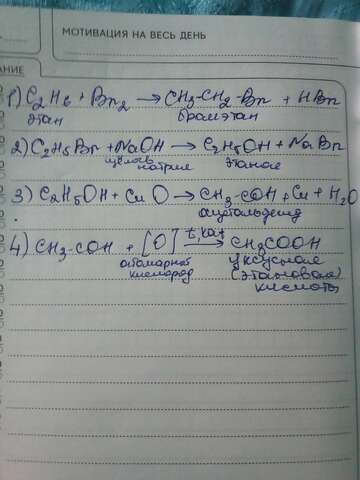 МОТИВАЦИЯ НА ВЕСЬ ДЕНЬ
АНИЕ
1) C2H6 + Br2 → CH3-CH2-Br + HBr
этан бромэтан
2) C2H5Br + NaOH → C2H5OH + NaBr
щелочь этанол
натрия
3) C2H5OH + CuO → CH3-COH + Cu + H2O
ацетальдегид
4) CH3-COH + [O] t, kat → CH3COOH
атомарный уксусная
кислород (этановая)
кислота